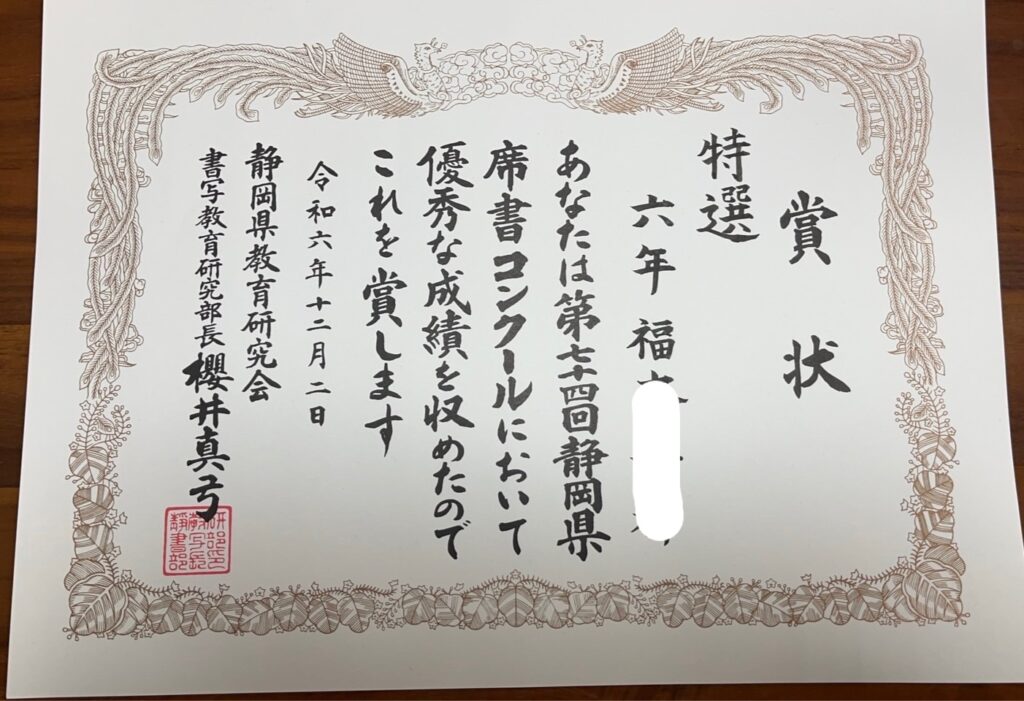 賞状
特選
六年 福
あなたは第七十四回静岡県
席書コンクールにおいて
優秀な成績を収めたので
これを賞します
令和六年十二月二日
静岡県教育研究会
書写教育研究部長 櫻井真弓